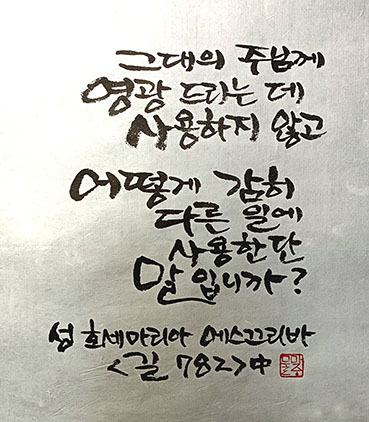 그대의 주님께
영광 드리는 데
사용하지 않고
어떻게 감히
다른 일에
사용한단
말입니까?
성 호세마리아 에스끄리바
<길 782>中